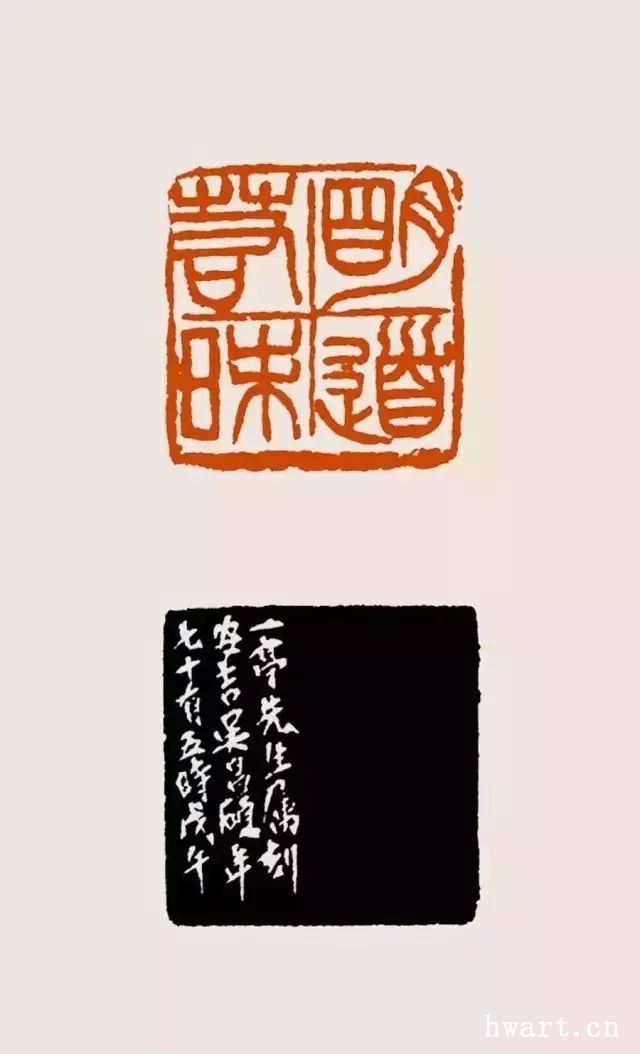 明道
若昧
一亭先生属刻
安吉吴昌碩年
七十有五時戊午
hwart.cn